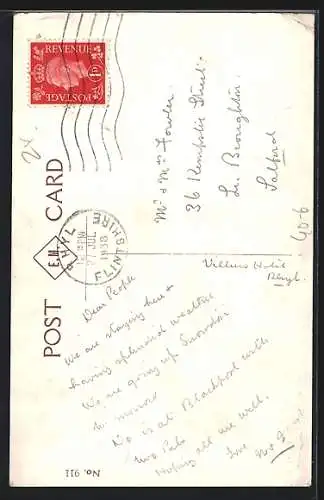 POSTAGE
REVENUE
1D
POST CARD
E.T.W.
RHYL
FLINTSHIRE
PM
27 JUL
1938
Mr & Mrs Fowler
36 Street
Lr. Broughton
Salford
40-6
Villiers Hotel
Rhyl
Dear People
We are staying here &
having splendid weather
We are going up Snowdon
to-morrow
is at Blackpool with
two Pals
Hoping all are well.
Love
No. 911